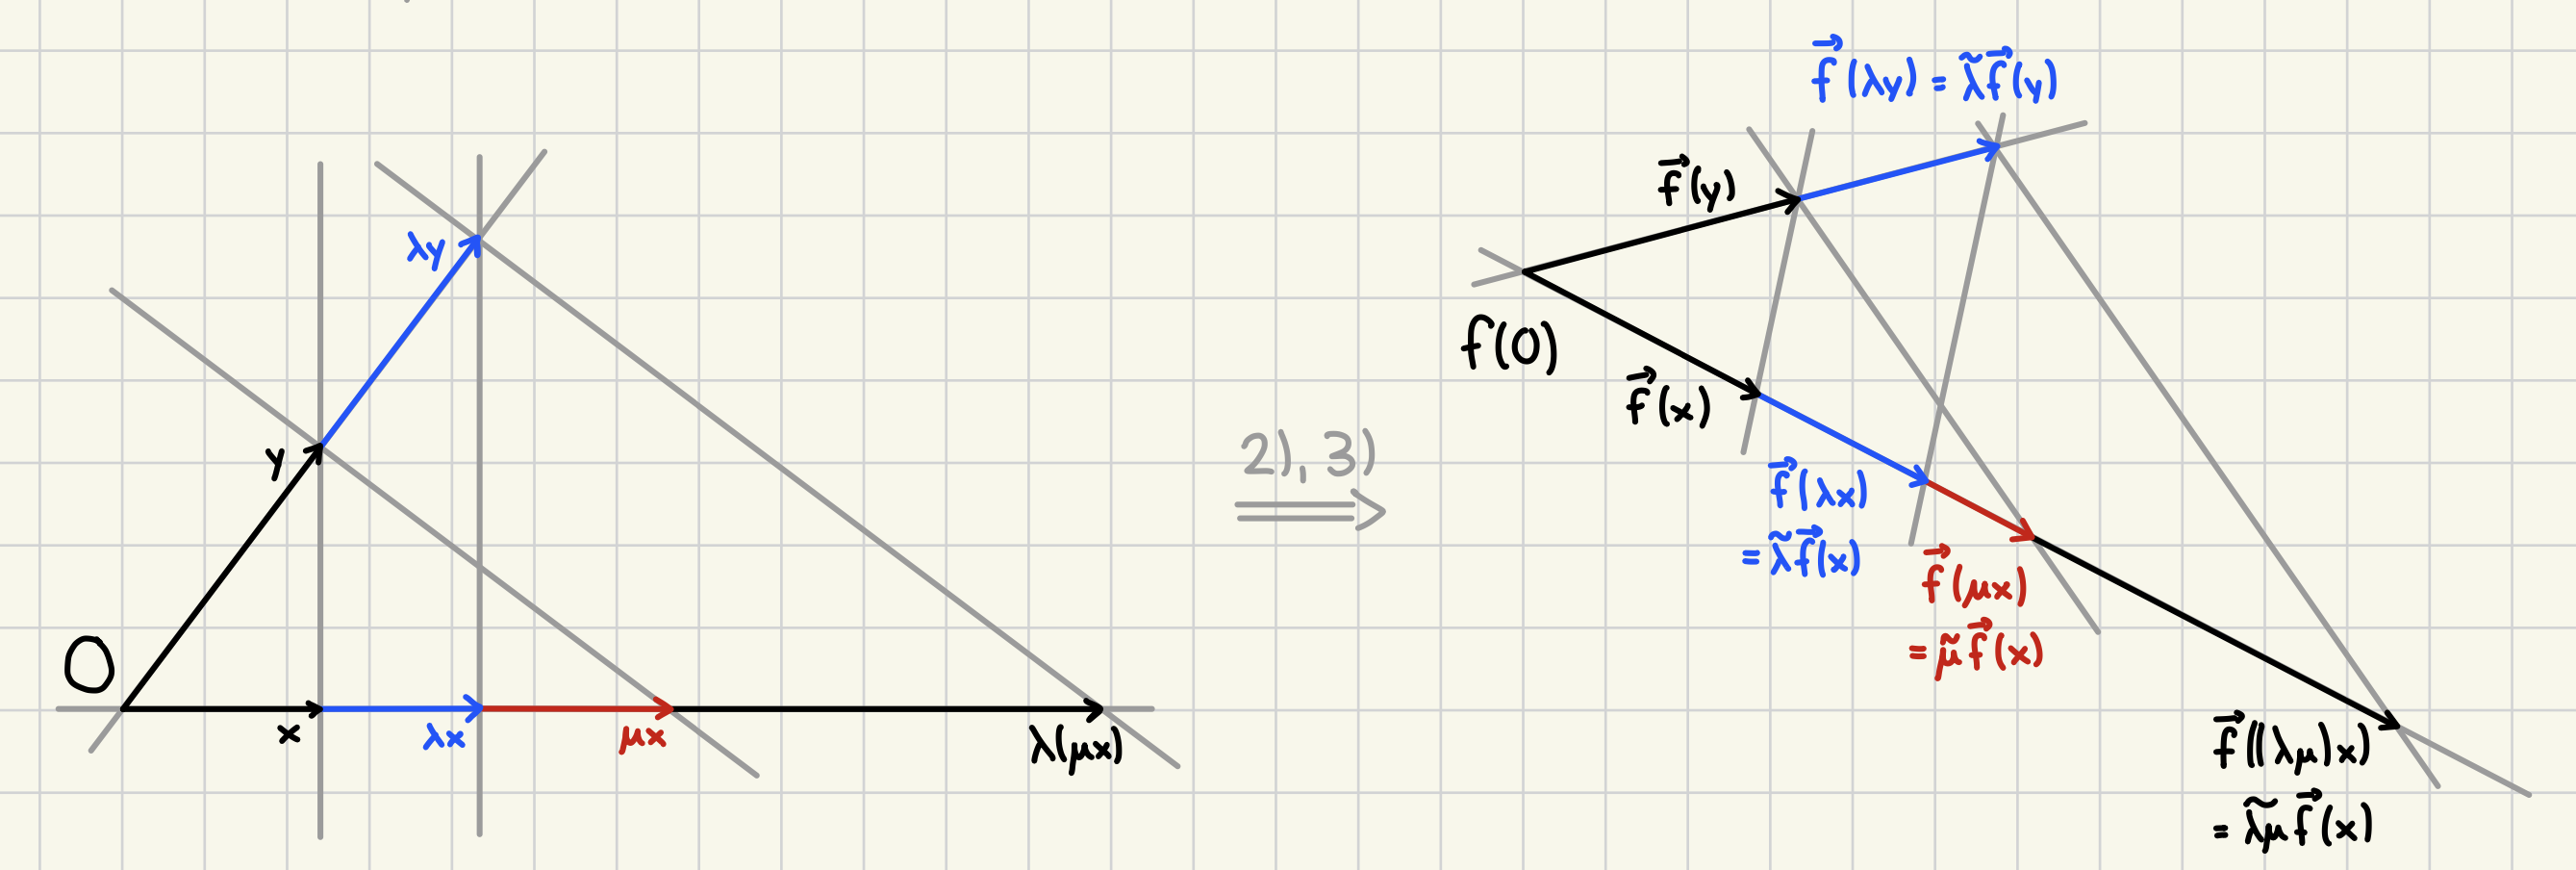 λy
y
O
x
λx
μx
λ(μx)
2),3)
f⃗(λy) = λ̃f⃗(y)
f⃗(y)
f(0)
f⃗(x)
f⃗(λx)
= λ̃f⃗(x)
f⃗(μx)
= μ̃f⃗(x)
f⃗((λμ)x)
= λ͠μf⃗(x)